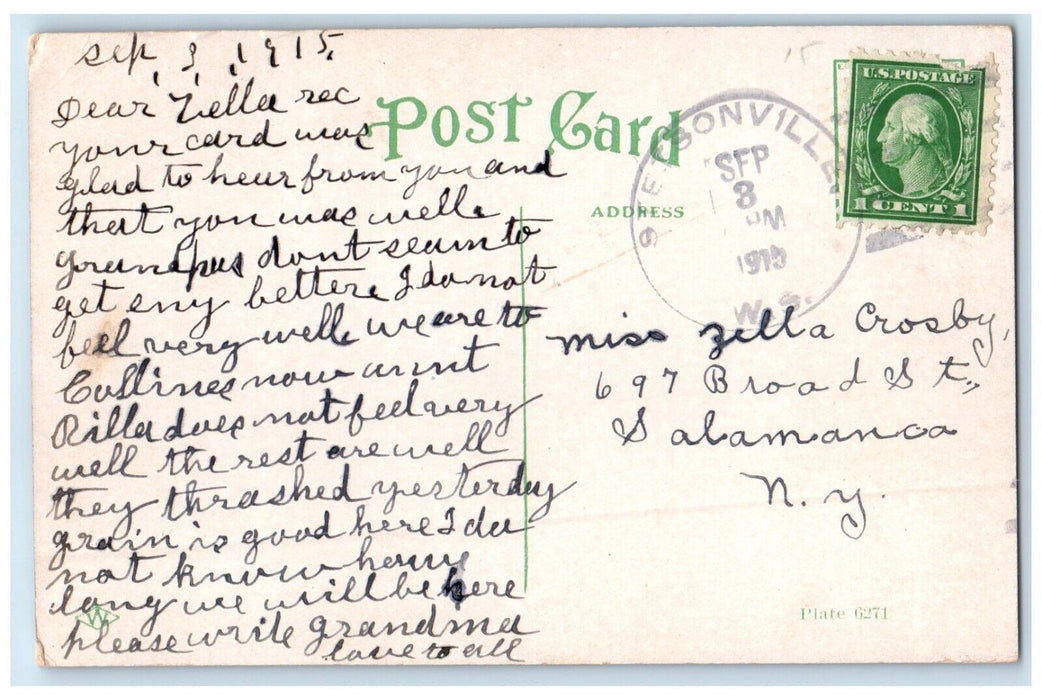 Sep, 3, 1915.
Dear Zella rec
your card was
glad to hear from you and
that you was well.
grandpas dont seam to
get eny better. I do not
feel very well. we are to
Collines now aunt
Rilla does not feel very
well the rest are well
they thrashed yesterday
grain is good here I do
not know how
long we will be here
please write grandma
love to all
Post Card
ADDRESS
SEP
3
PM
1915
W.S.
U.S. POSTAGE
1 CENT 1
Miss Zella Crosby,
697 Broad St.,
Salamanca
N. Y.
W
Plate 6271